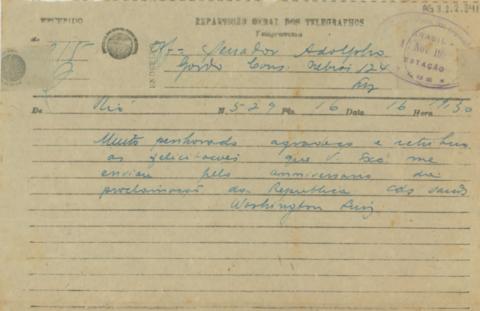 AG 3.2.2.341
RECEBIDO
REPARTIÇÃO GERAL DOS TELEGRAPHOS
Telegramma
de
Senador Adolpho
Gordo Cons. Nebias 124
ENDEREÇO
BRASIL
Nov
ESTAÇÃO
De Rio N. 529 Pls. 16 Data 16 Hora 1130
Muito penhorado agradeço e retribuo
as felicitações que V. Exa me
enviou pelo anniversario da
proclamação da Republica
Washington Luiz